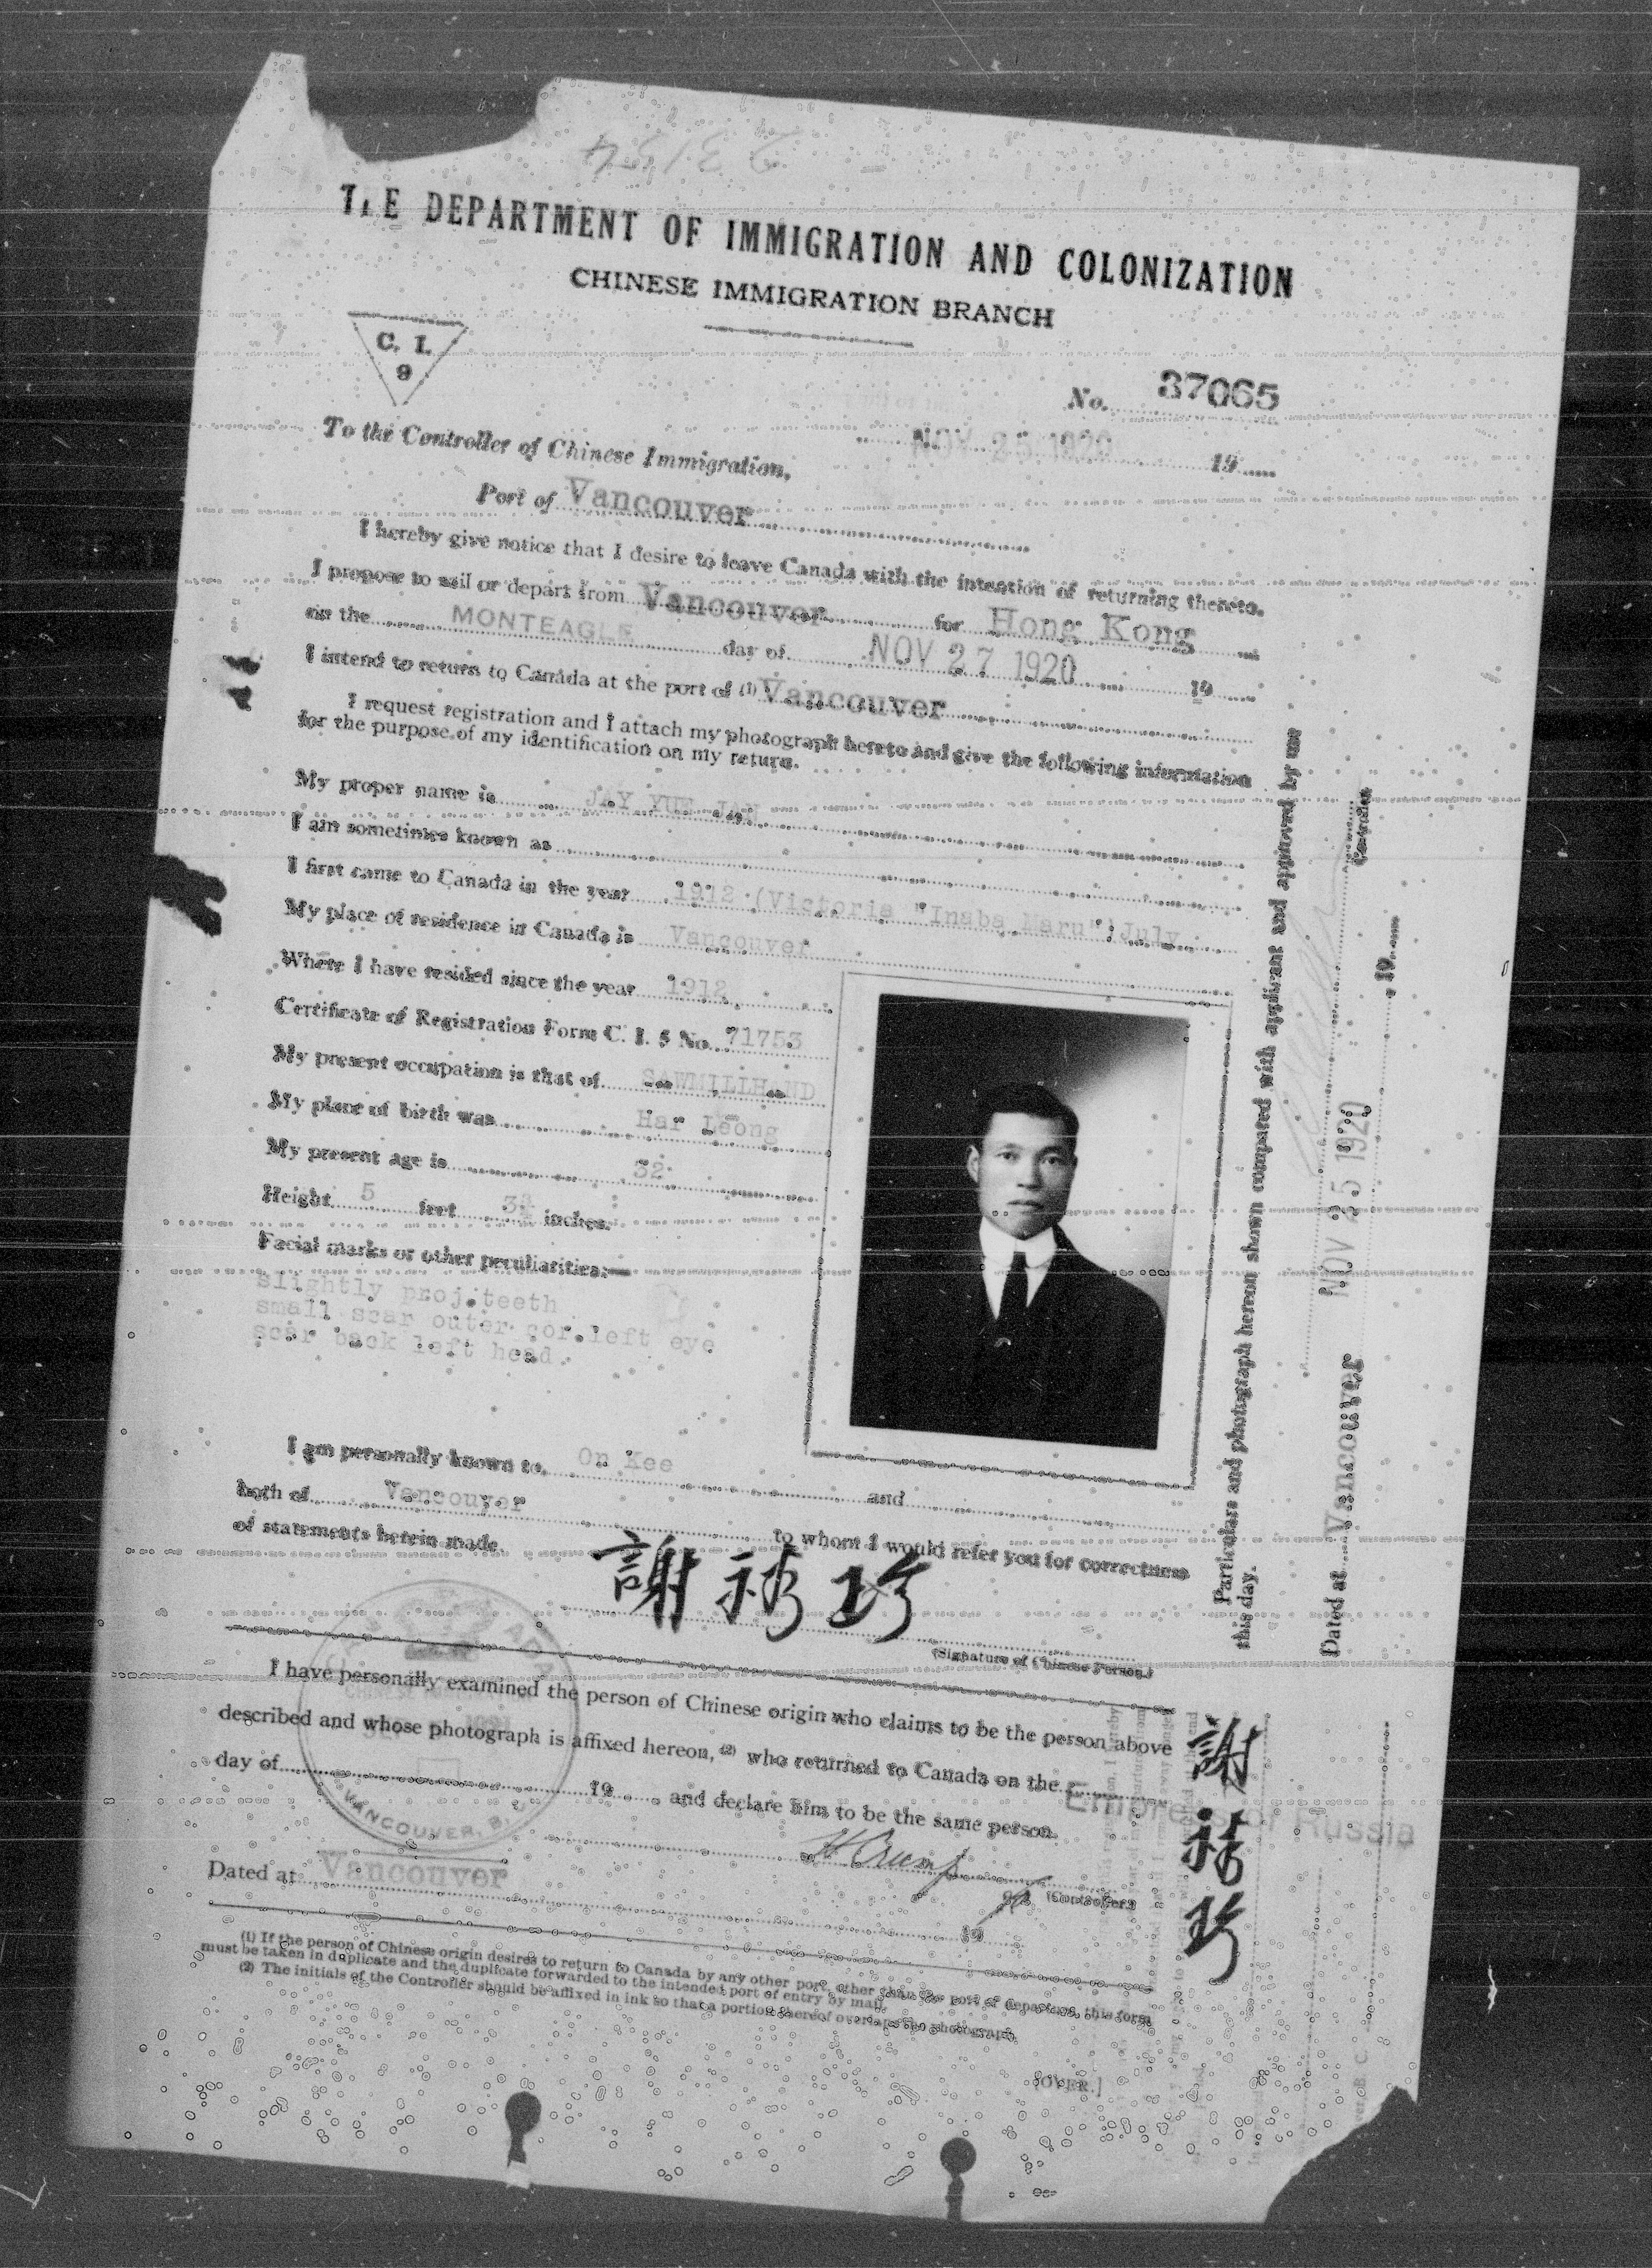 THE DEPARTMENT OF IMMIGRATION AND COLONIZATION
CHINESE IMMIGRATION BRANCH
C. I.
9
No. 37065
NOV 25 1920 19
To the Controller of Chinese Immigration,
Port of Vancouver
I hereby give notice that I desire to leave Canada with the intention of returning thereto.
I propose to sail or depart from Vancouver for Hong Kong
on the MONTEAGLE day of NOV 27 1920 19
I intend to return to Canada at the port of (1) Vancouver
I request registration and I attach my photograph hereto and give the following information
for the purpose of my identification on my return.
My proper name is JAY YUE JAN
I am sometimes known as
I first came to Canada in the year 1912 (Victoria "Inaba Maru") July
My place of residence in Canada is Vancouver
Where I have resided since the year 1912
Certificate of Registration Form C. I. 5 No. 71753
My present occupation is that of SAWMILLHAND
My place of birth was Har Leong
My present age is 32
Height 5 feet 3¾ inches.
Facial marks or other peculiarities:—
slightly proj.teeth
small scar outer cor.left eye
scar back left head.
I am personally known to On Kee and
both of Vancouver to whom I would refer you for correctness
of statements herein made.
謝 珍
(Signature of Chinese Person.)
I have personally examined the person of Chinese origin who claims to be the person above
described and whose photograph is affixed hereon, (2) who returned to Canada on the
day of 19 and declare him to be the same person.
VANCOUVER, B.
Empress of Russia
Controller
Dated at Vancouver
19
(1) If the person of Chinese origin desires to return to Canada by any other port, other than the port of departure, this form
must be taken in duplicate and the duplicate forwarded to the intended port of entry by mail.
(2) The initials of the Controller should be affixed in ink so that a portion thereof overlaps the photograph.
[OVER.]
Particulars and photograph hereon shown compared with applicant and approved by me
this day.
Controller
Dated at Vancouver NOV 25 1920 19
謝 珍